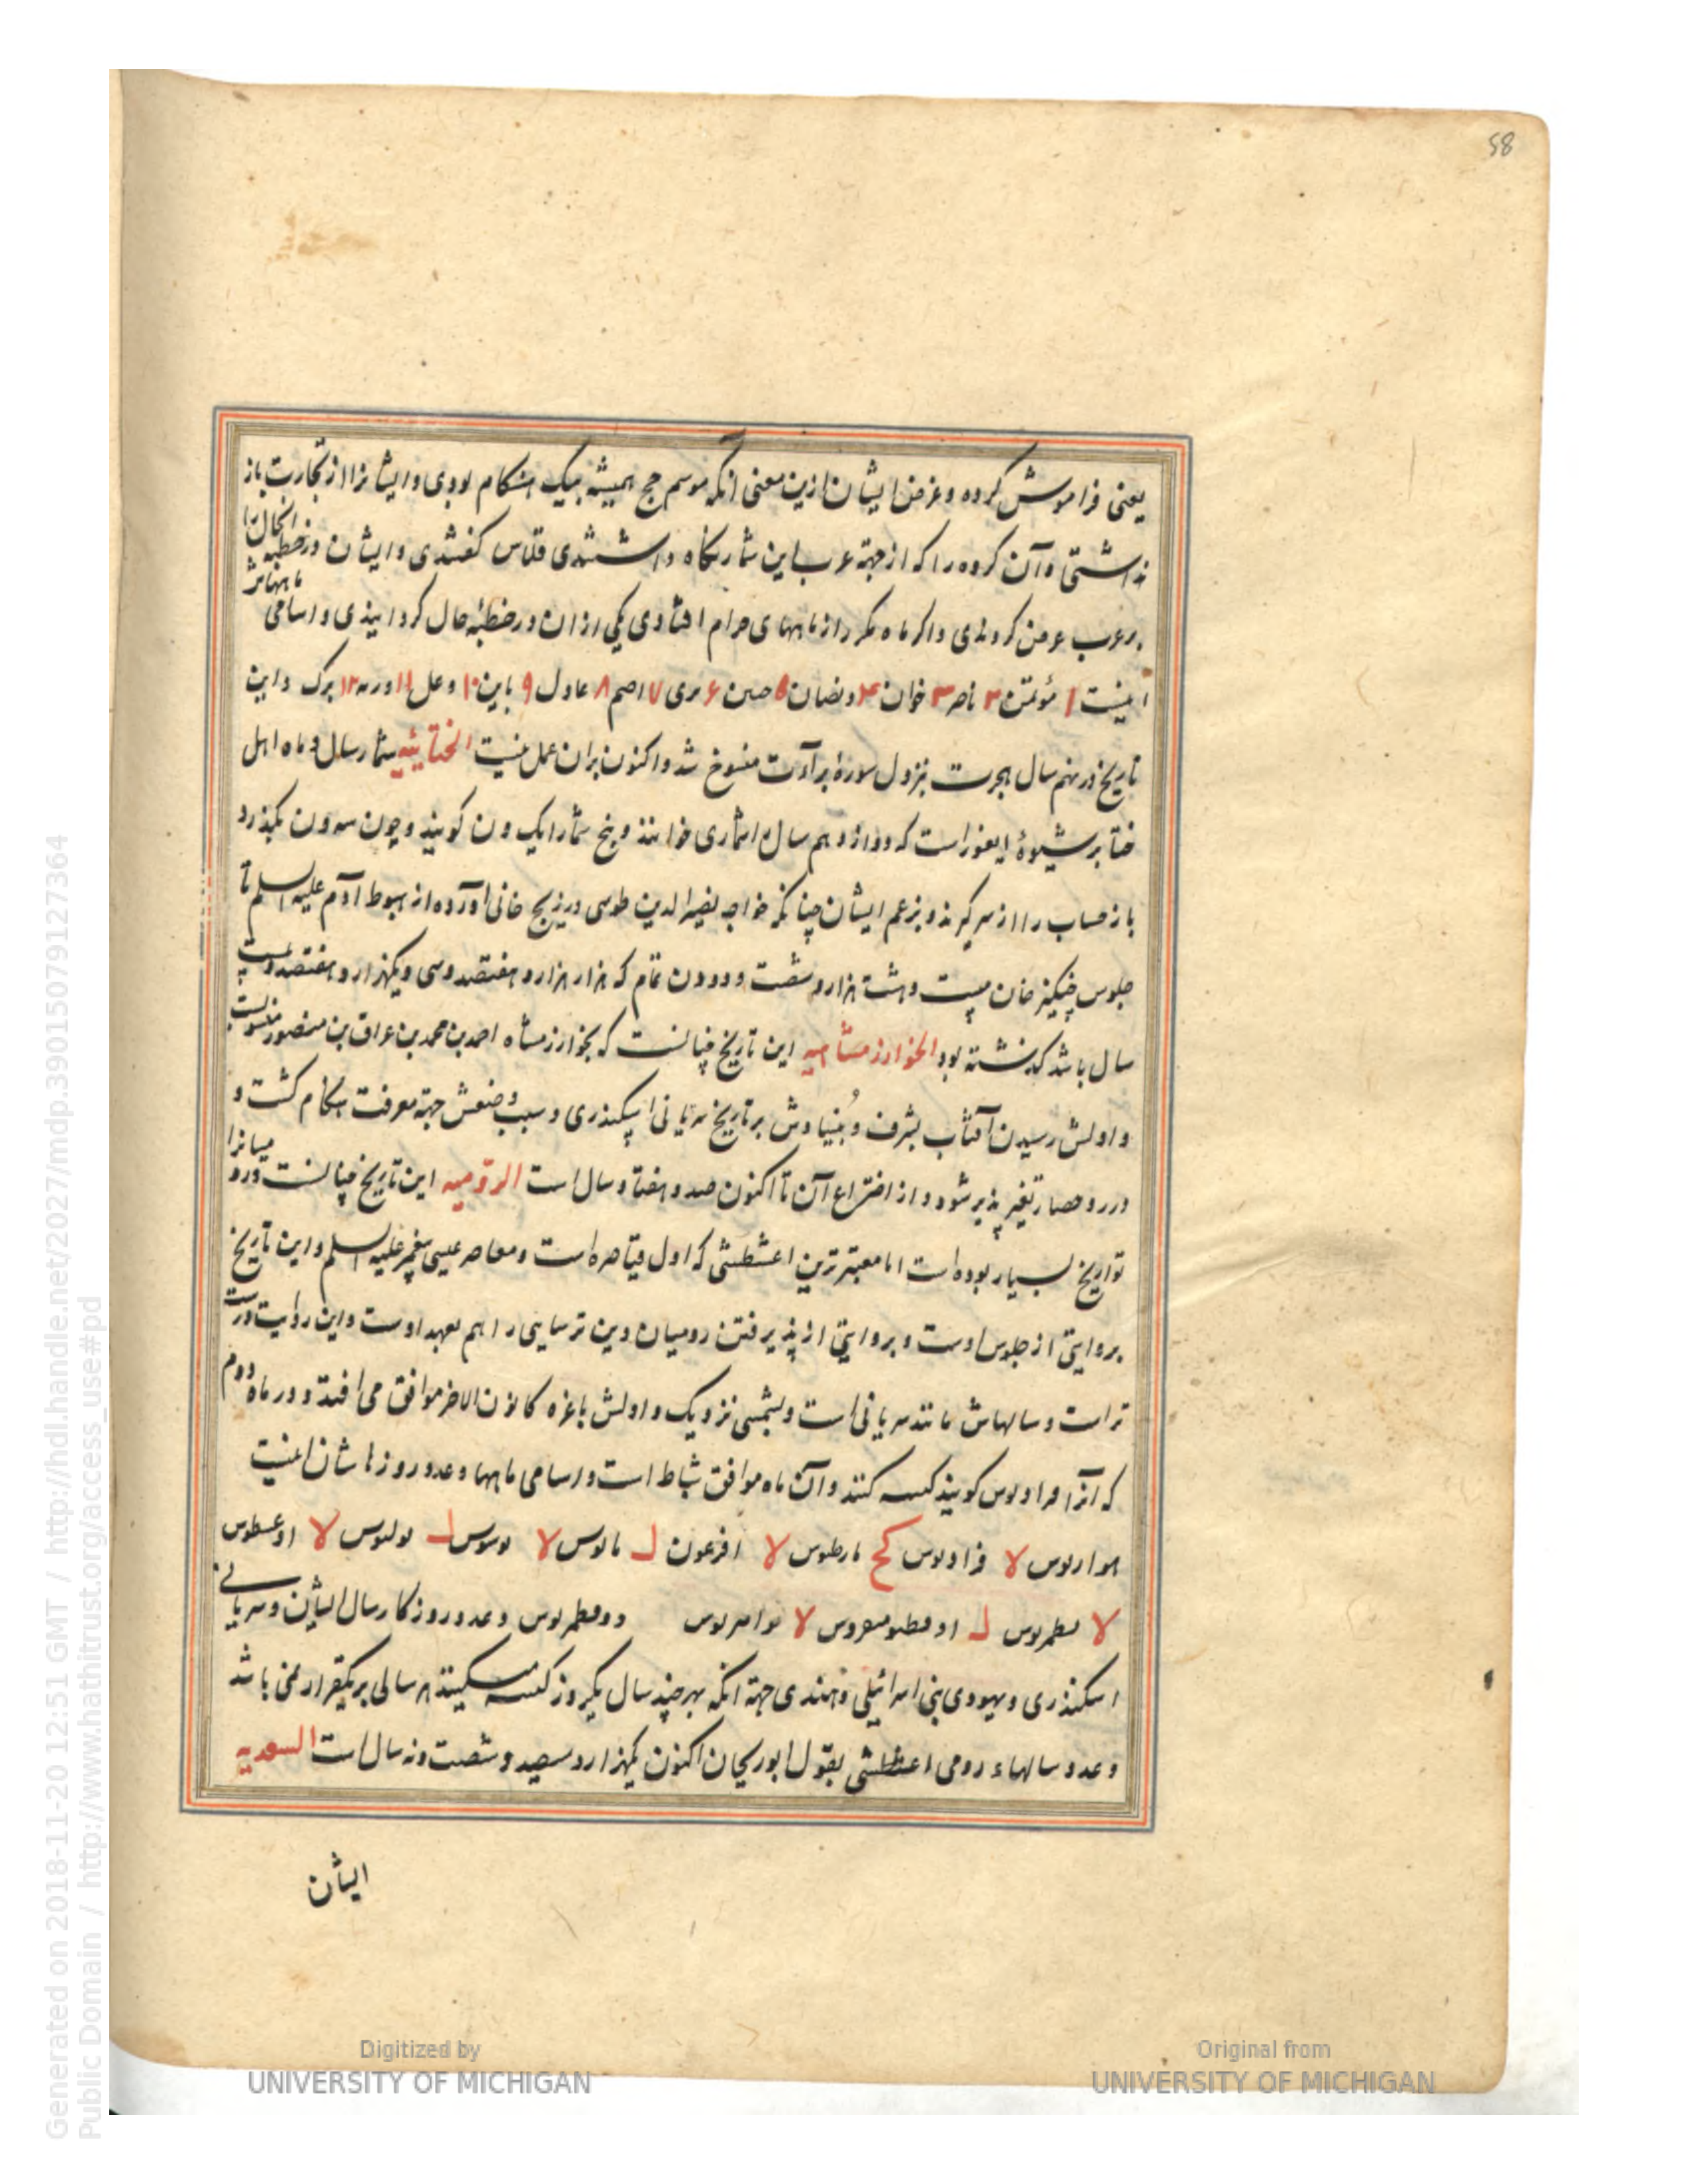 58
یعنی فراموش کرده و غرض ایشان ازین معنی آنکه موسم حج همیشه بیک هنکام بودی و ایشانرا از تجارت باز
نداشتی و آن کروه را که از جهة عرب این شمار نکاه داشتندی قلاس کفتندی و ایشان در خطبه
بر عرب عرض کردندی و اکر ماه مکرر از ماههای حرام افتادی یکی ازان در خطبه حال کردانیذی و اسامی ماههاش
اینست ۱ مؤتمن ۲ ناجر ۳ خوان ۴ وبضان ۵ حنین ۶ ربی ۷ اصم ۸ عادل ۹ باین ۱۰ وعل ۱۱ ورنه ۱۲ برک و این
تاریخ در نهم سال هجرت بنزول سورهٔ برآءت منسوخ شد و اکنون بران عمل نیست الختائیه شمار سال و ماه اهل
ختا بر شیوهٔ ایغور است که دوازدهم سال اشاری خوانند و پنج شمار ایک ون کویند و چون سه ون بکذرد
باز حساب را از سر کیرند و بزعم ایشان چنانکه خواجه نصیر الدین طوسی در زیج خانی آورده از هبوط آدم علیه السلم تا
جلوس چنکیز خان بیست و هشت هزار و شصت و دو ون تمام که هزار هزار و هفتصد و سی و یکهزار و هفتصد و بیست
سال باشد کذشته بود الخوارزمشاهیه این تاریخ چنانست که بخوارزمشاه احمد بن محمد بن عراق بن منصور منسوبست
و اولش رسیدن آفتاب بشرف و بنیادش بر تاریخ سریانی اسکندری و سبب وضعش جهة معرفت هنکام کشت و
درو حصار تغیر پذیر شود و از اختراع آن تا اکنون صد و هفتاد سال است الرومیه این تاریخ چنانست در رو میانرا
تواریخ بسیار بوده است اما معتبرترین اغشطشی که اول قیاصره است و معاصر عیسی پیغمبر علیه السلم و این تاریخ
بروایتی از جلوس اوست و بروایتی از پذیرفتن رومیان دین ترسایی را هم بعهد اوست و این روایت درست
تر است و سالهاش مانند سریانی است و بشمسی نزدیک و اولش باغره کانون الاخر موافق می افتد و در ماه دوم
که آنرا فراریوس کویند کبیسه کنند و آن ماه موافق شباط است و اسامی ماهها و عدد روزهاشان اینست
ینواریوس لا فراریوس کح مارطیوس لا افرعون ل مایوس لا یونیوس ل یولیوس لا اوغسطوس
لا سطمبریوس ل اوقطومبروس لا نوامبریوس دوقطمبریوس و عدد روزکار سال ایشان و سریانی
اسکندری و یهودی بنی اسرائیلی و هندی جهة آنکه بهر چند سال یکروز کبیسه میکنند هر سالی بر یکقرار نمی باشد
و عدد سالهاء رومی اغشطشی بقول ابوریحان اکنون یکهزار و سیصد و شصت و نه سال است السغدیه
ایشان
Generated on 2018-11-20 12:51 GMT / http://hdl.handle.net/2027/mdp.39015079127364
Public Domain / http://www.hathitrust.org/access_use#pd
Digitized by
UNIVERSITY OF MICHIGAN
Original from
UNIVERSITY OF MICHIGAN